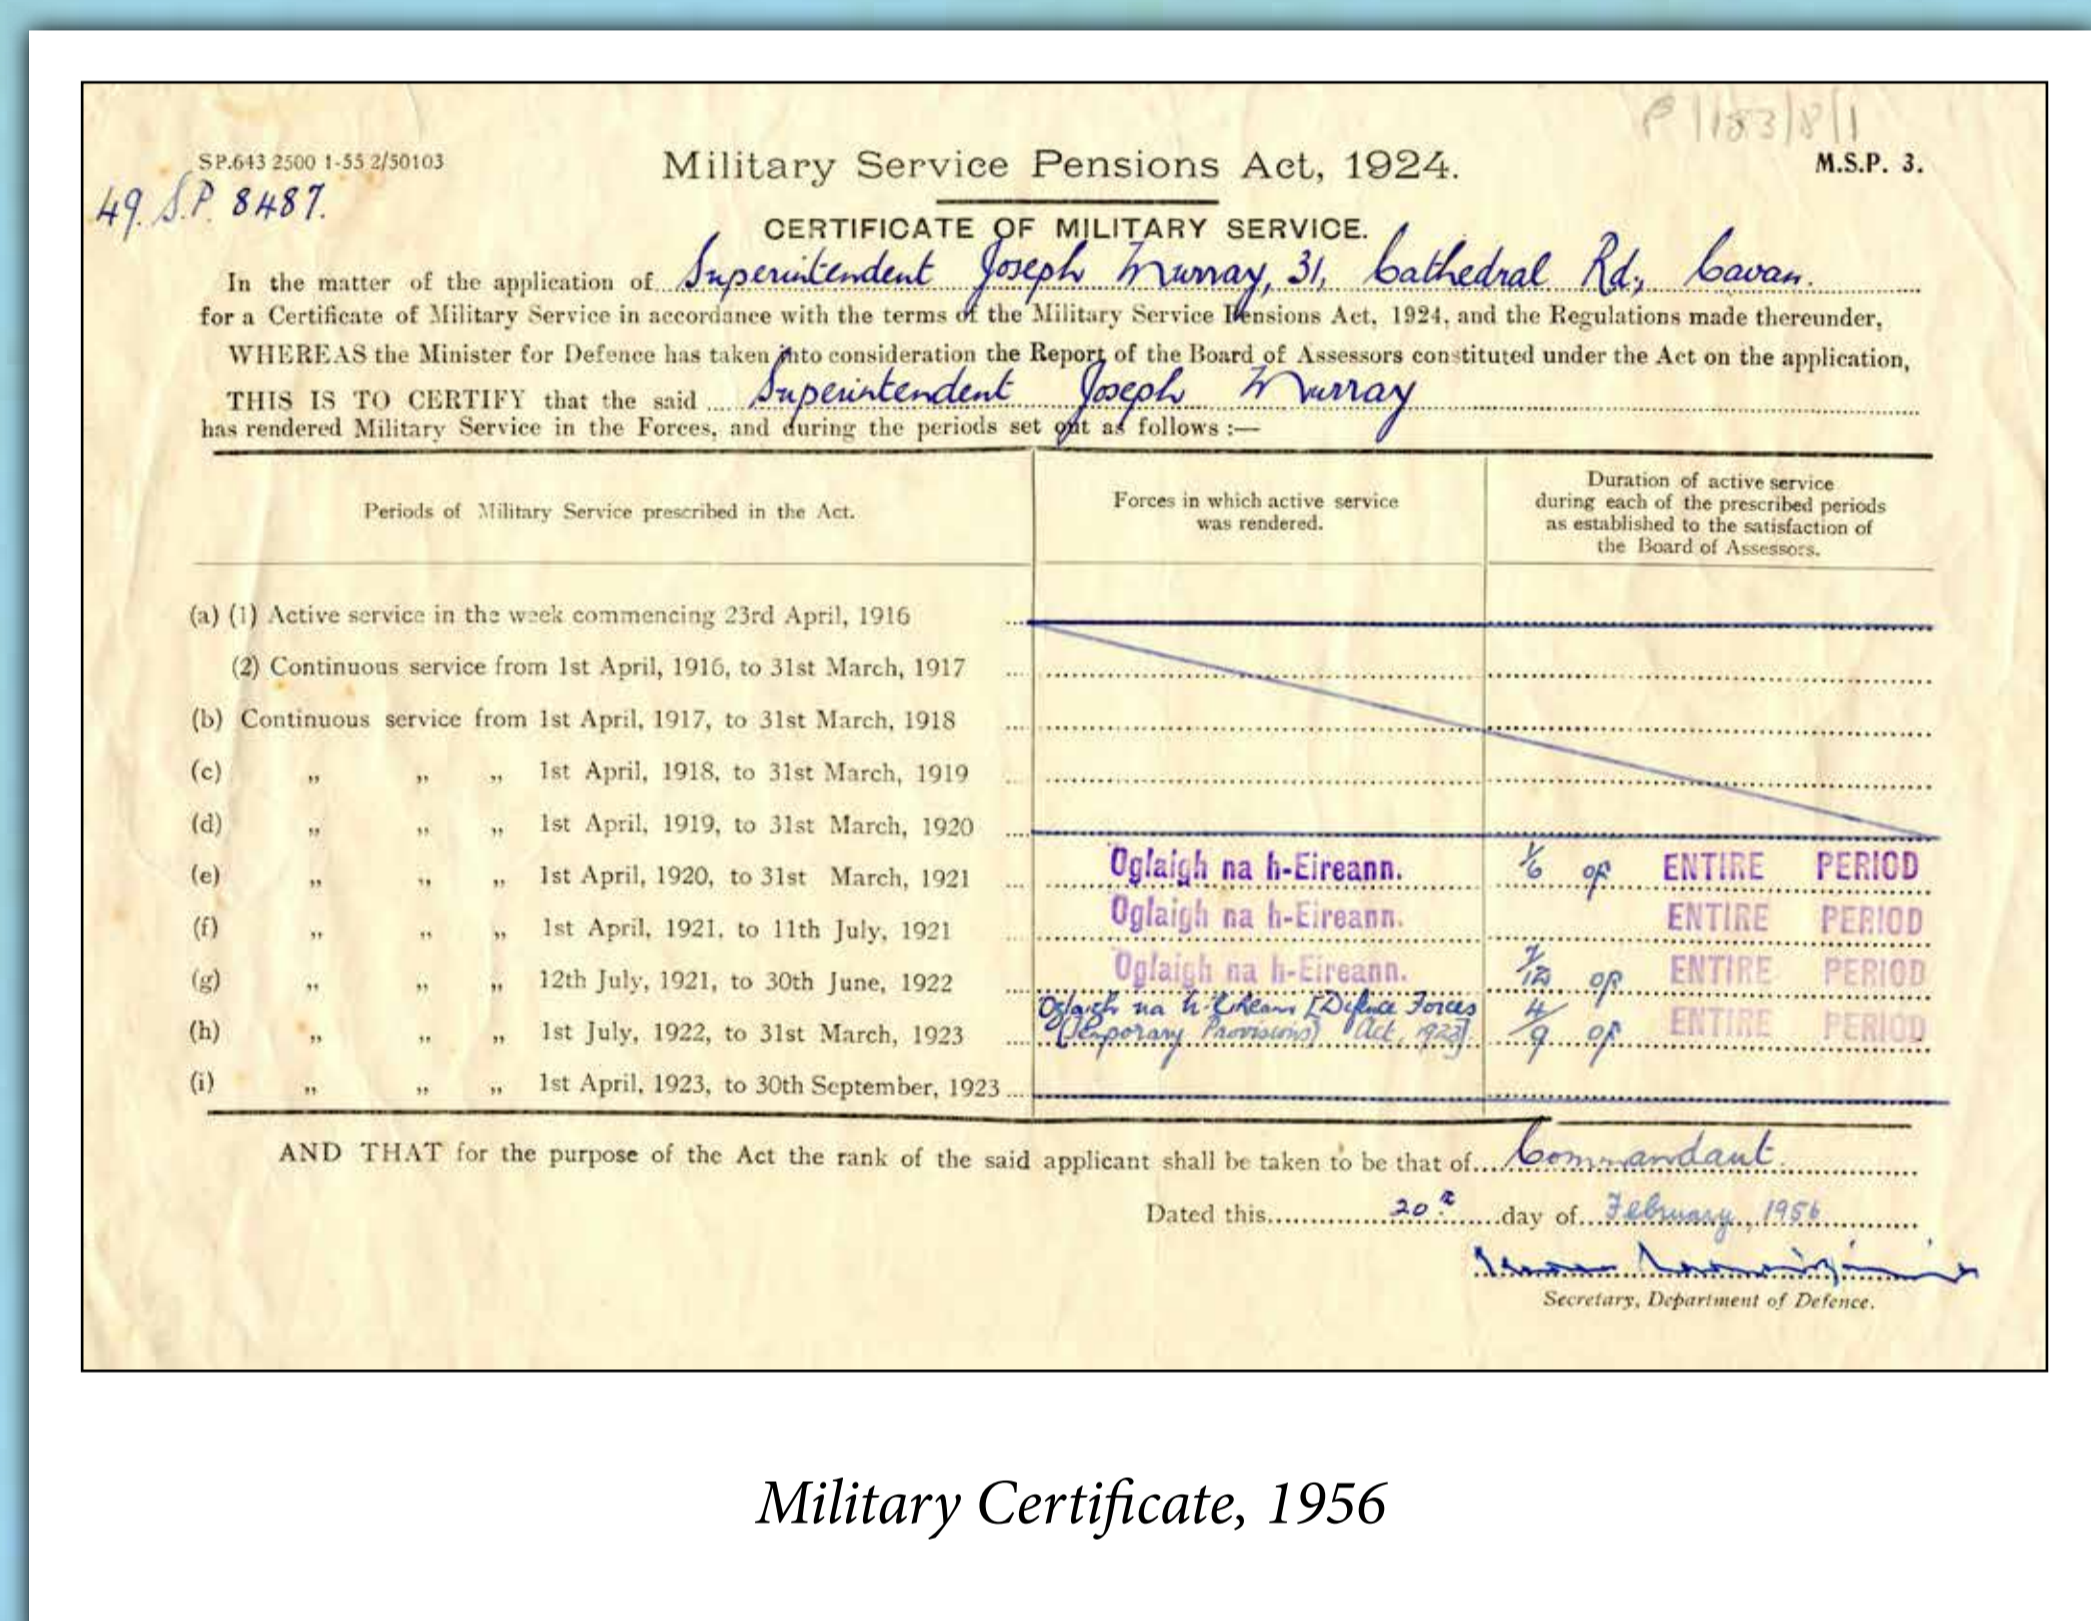 P1/183/8/1
SP.643 2500 1-55 2/50103
Military Service Pensions Act, 1924.
M.S.P. 3.
49. S.P. 8487.
CERTIFICATE OF MILITARY SERVICE.
In the matter of the application of Superintendent Joseph Murray, 31, Cathedral Rd., Cavan.
for a Certificate of Military Service in accordance with the terms of the Military Service Pensions Act, 1924, and the Regulations made thereunder,
WHEREAS the Minister for Defence has taken into consideration the Report of the Board of Assessors constituted under the Act on the application,
THIS IS TO CERTIFY that the said Superintendent Joseph Murray
has rendered Military Service in the Forces, and during the periods set out as follows :—
Periods of Military Service prescribed in the Act.
Forces in which active service
was rendered.
Duration of active service
during each of the prescribed periods
as established to the satisfaction of
the Board of Assessors.
(a) (1) Active service in the week commencing 23rd April, 1916
(2) Continuous service from 1st April, 1916, to 31st March, 1917
(b) Continuous service from 1st April, 1917, to 31st March, 1918
(c) „ „ „ 1st April, 1918, to 31st March, 1919
(d) „ „ „ 1st April, 1919, to 31st March, 1920
(e) „ „ „ 1st April, 1920, to 31st March, 1921 Oglaigh na h-Eireann. 1/6 OF ENTIRE PERIOD
(f) „ „ „ 1st April, 1921, to 11th July, 1921 Oglaigh na h-Eireann. ENTIRE PERIOD
(g) „ „ „ 12th July, 1921, to 30th June, 1922 Oglaigh na h-Eireann. 7/12 OF ENTIRE PERIOD
Oglaigh na h-Eireann [Defence Forces
(h) „ „ „ 1st July, 1922, to 31st March, 1923 (Temporary Provisions) Act, 1923]. 4/9 OF ENTIRE PERIOD
(i) „ „ „ 1st April, 1923, to 30th September, 1923
AND THAT for the purpose of the Act the rank of the said applicant shall be taken to be that of Commandant.
Dated this 20th day of February, 1956
Secretary, Department of Defence.
Military Certificate, 1956